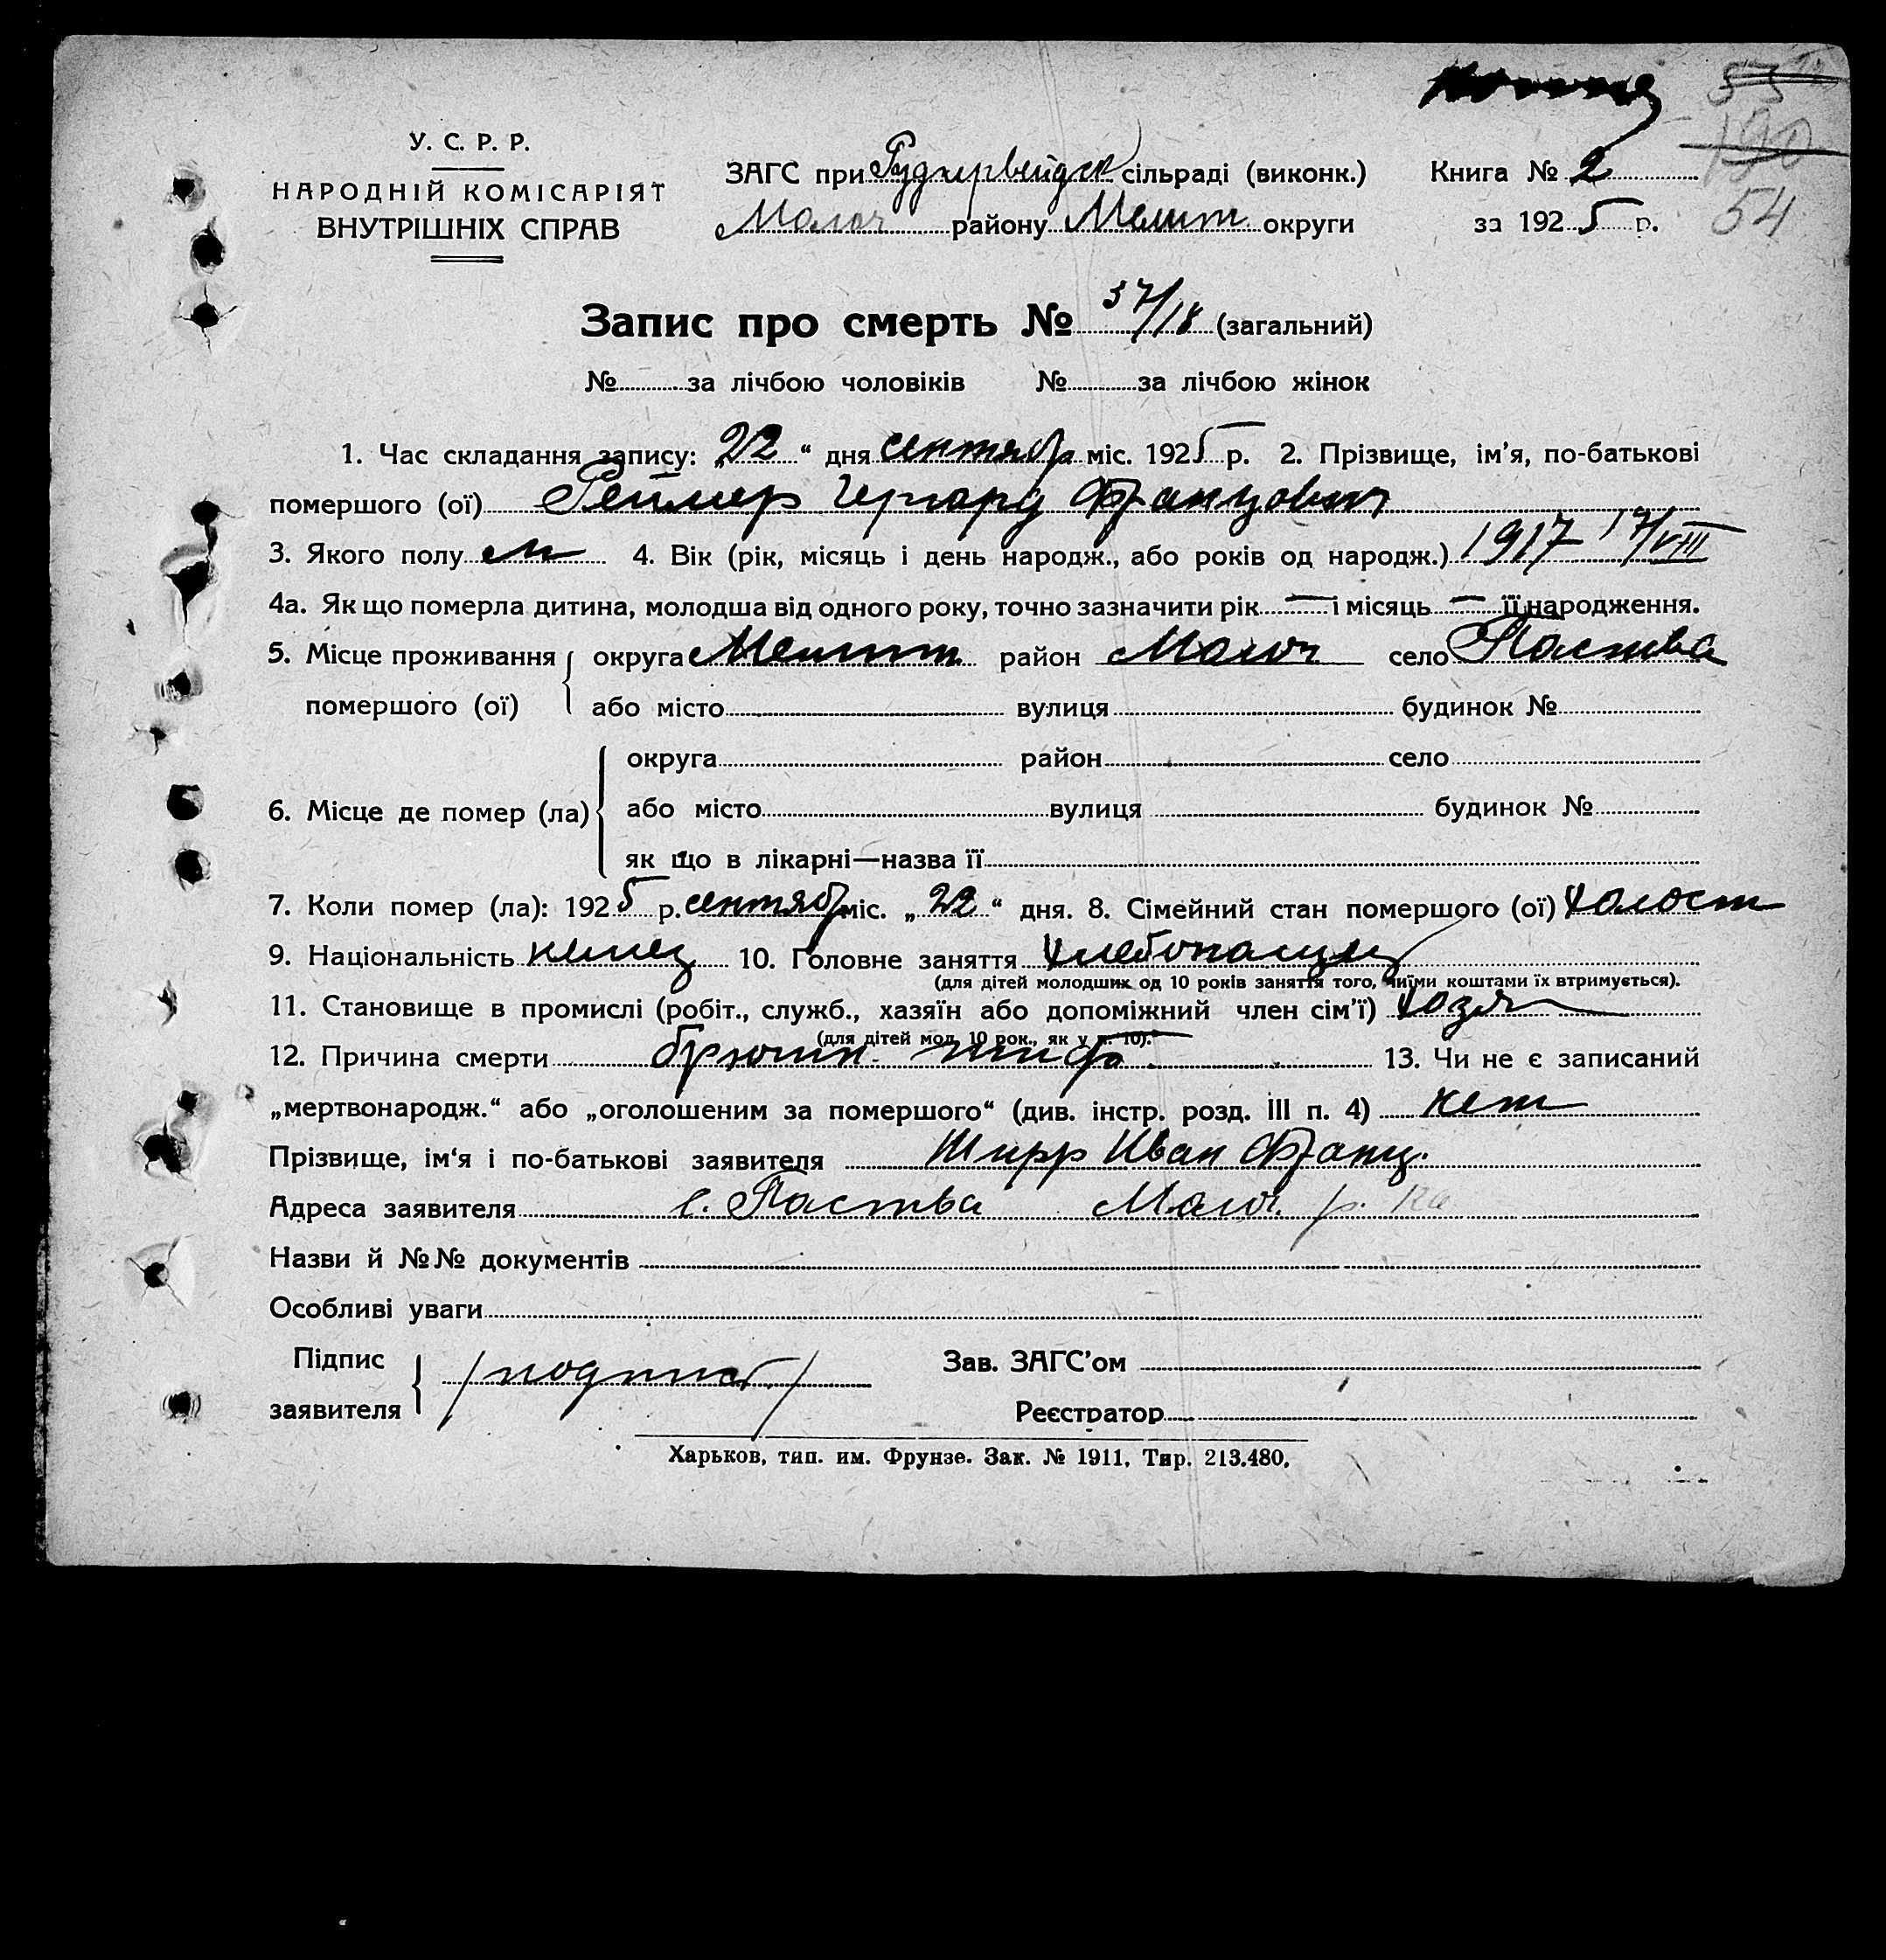 Копия
53
190
54
У. С. Р. Р.
НАРОДНІЙ КОМІСАРІЯТ
ВНУТРІШНІХ СПРАВ
ЗАГС при Руднервейдск сільраді (виконк.) Книга № 2
Молоч району Мелит округи за 1925 р.
Запис про смерть № 37/18 (загальний)
№ за лічбою чоловіків № за лічбою жінок
1. Час складання запису: „22“ дня сентябр міс. 1925 р. 2. Прізвище, ім'я, по-батькові
помершого (ої) Реймер Гергард Францович
3. Якого полу м 4. Вік (рік, місяць і день народж., або років од народж.) 1917 17/VIII
4а. Як що померла дитина, молодша від одного року, точно зазначити рік — і місяць — її народження.
5. Місце проживання округа Мелит район Молоч село Паства
помершого (ої) або місто вулиця будинок №
округа район село
6. Місце де помер (ла) або місто вулиця будинок №
як що в лікарні—назва її
7. Коли помер (ла): 1925 р. сентябр міс. „22“ дня. 8. Сімейний стан помершого (ої) холост
9. Національність немец 10. Головне заняття хлебопашец
(для дітей молодших од 10 років заняття того, чиїми коштами їх втримується).
11. Становище в промислі (робіт., служб., хазяїн або допоміжний член сім'ї) хозя
(для дітей мол. 10 рок., як у п. 10).
12. Причина смерти брюшн. тиф 13. Чи не є записаний
„мертвонародж.“ або „оголошеним за помершого“ (див. інстр. розд. III п. 4) нет
Прізвище, ім'я і по-батькові заявителя Ширр Иван Франц.
Адреса заявителя с. Паства Молоч. р.
Назви й №№ документів
Особливі уваги
Підпис Зав. ЗАГС'ом
/подпись/
заявителя Реєстратор
Харьков, тип. им. Фрунзе. Зак. № 1911. Тир. 213.480.